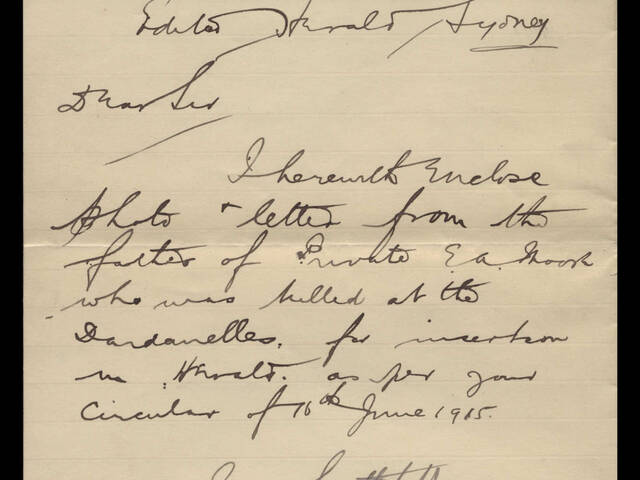 Editor Herald Sydney
Dear Sir
I herewith Enclose
photo + letter from the
father of Private E.A. Moore
who was killed at the
Dardanelles. for insertion
in Herald. as per your
Circular of 16th June 1915.